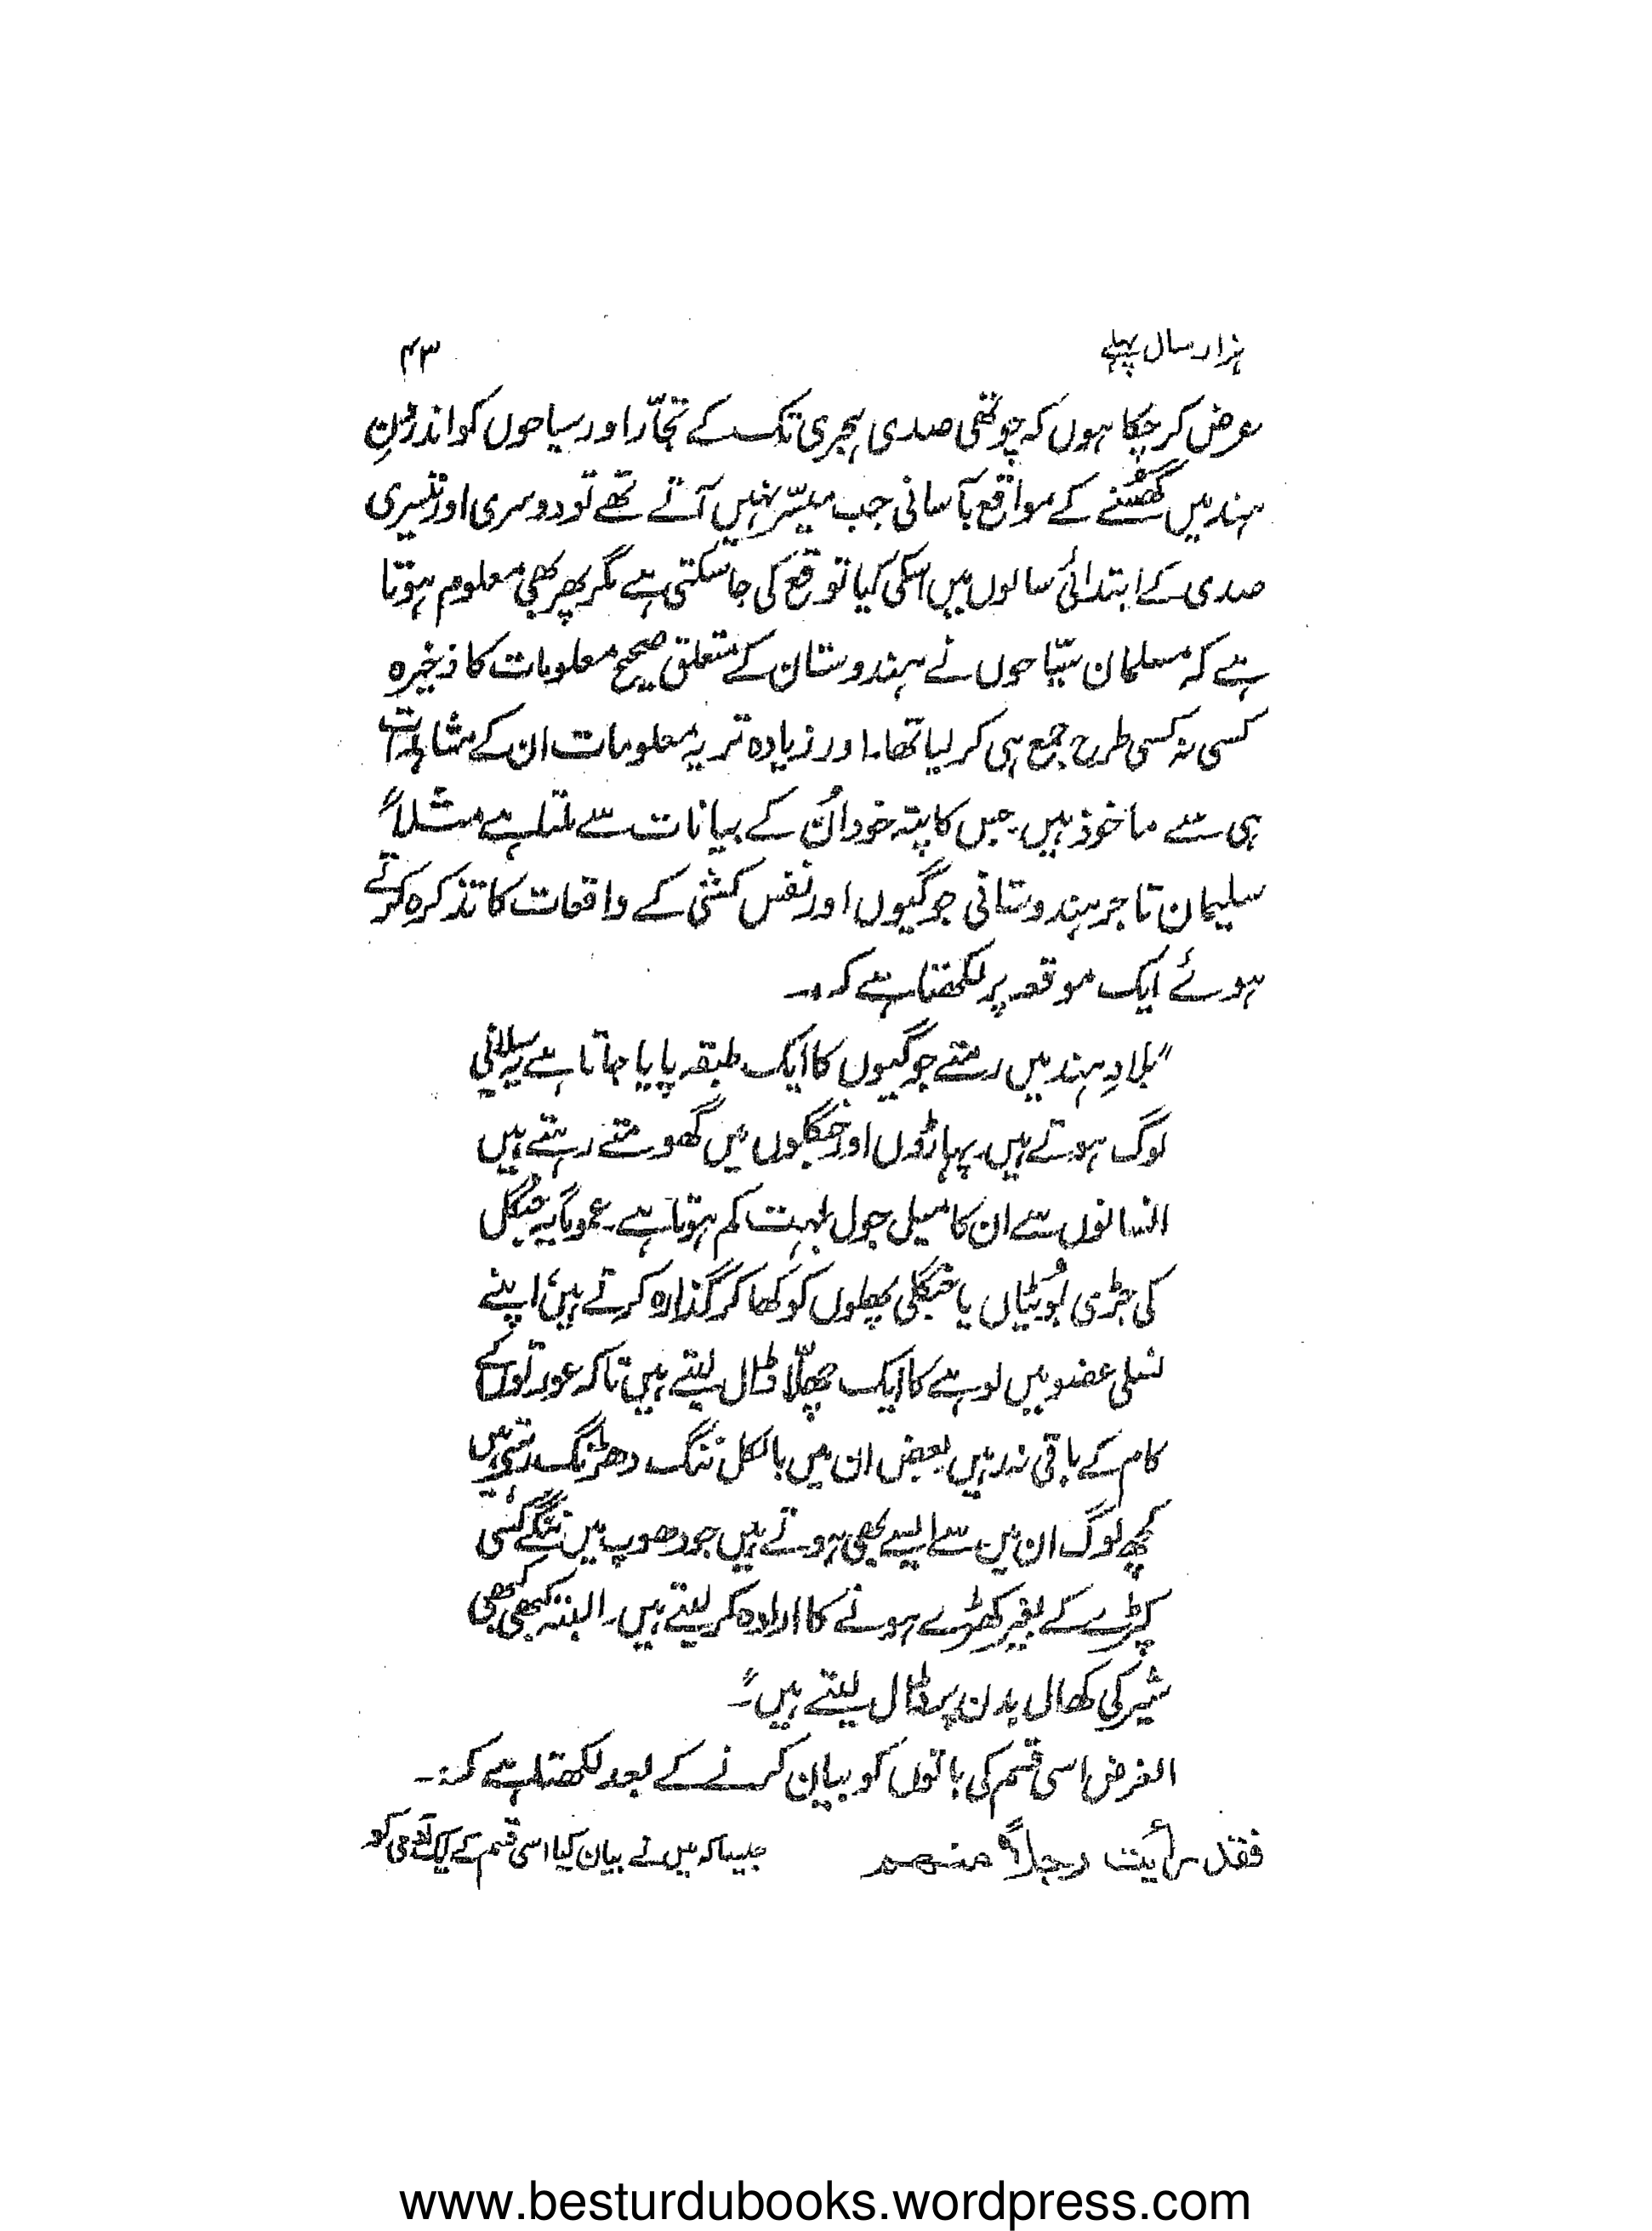 ہزار سال پہلے ۴۳
عرض کر چکا ہوں کہ چوتھی صدی ہجری تک کے تجّار اور سیاحوں کو اندرونِ
ہند میں گھُسنے کے مواقع بآسانی جب میسّر نہیں آتے تھے تو دوسری اور تیسری
صدی کے ابتدائی سالوں میں اسکی کیا توقع کی جا سکتی ہے مگر پھر بھی معلوم ہوتا
ہے کہ مسلمان سیّاحوں نے ہندوستان کے متعلق صحیح معلومات کا ذخیرہ
کسی نہ کسی طرح جمع ہی کر لیا تھا۔ اور زیادہ تر یہ معلومات ان کے مشاہدات
ہی سے ماخوذ ہیں جس کا پتہ خود اُن کے بیانات سے ملتا ہے مثلاً
سلیمان تاجر ہندوستانی جوگیوں اور نفس کشی کے واقعات کا تذکرہ کرتے
ہوئے ایک موقعہ پر لکھتا ہے کہ :۔
"بلادِ ہند میں رمتے جوگیوں کا ایک طبقہ پایا جاتا ہے یہ سیلانی
لوگ ہوتے ہیں، پہاڑوں اور جنگلوں میں گھومتے رہتے ہیں
انسانوں سے ان کا میل جول بہت کم ہوتا ہے۔ عموماً یہ جنگل
کی جڑی بُوٹیاں یا جنگلی پھلوں کو کھا کر گذارہ کرتے ہیں، اپنے
نسلی عضو میں لوہے کا ایک چھلّا ڈال لیتے ہیں تاکہ عورتوں کے
کام کے باقی نہ رہیں بعض ان میں بالکل ننگ دھڑنگ رہتے ہیں
کچھ لوگ ان میں سے ایسے بھی ہوتے ہیں جو دھوپ میں ننگے کسی
کپڑے کے بغیر کھڑے ہونے کا ارادہ کر لیتے ہیں۔ البتہ کبھی کبھی
شیر کی کھال بدن پر ڈال لیتے ہیں"۔
الغرض اسی قسم کی باتوں کو بیان کرنے کے بعد لکھتا ہے کہ :۔
فقد رأیت رجلاً منھم جیسا کہ میں نے بیان کیا اسی قسم کے ایک آدمی کو
www.besturdubooks.wordpress.com